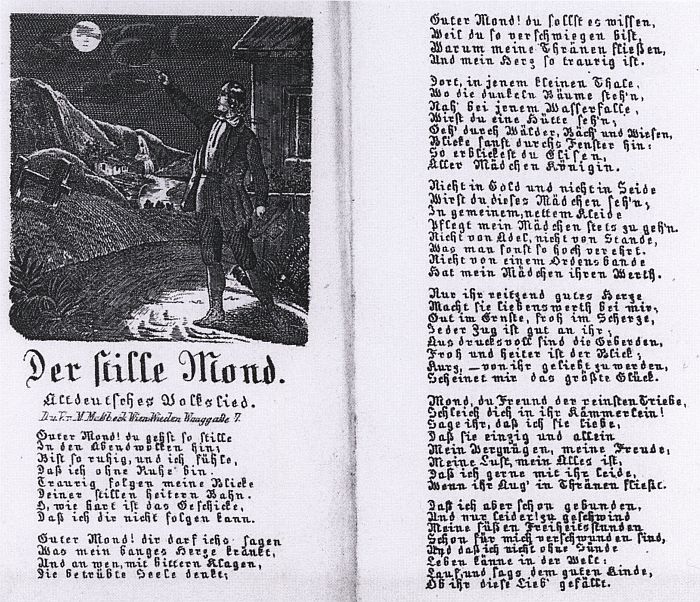 Der stille Mond.
Altdeutsches Volkslied.
Wien Wieden 7.
Guter Mond! du gehst so stille
In den Abendwolken hin;
Bist so ruhig, und ich fühle,
Daß ich ohne Ruhe bin.
Traurig folgen meine Blicke
Deiner stillen heitern Bahn.
O, wie hart ist das Geschicke,
Daß ich dir nicht folgen kann.
Guter Mond! dir darf ichs sagen
Was mein banges Herze kränkt,
Und an wen, mit bittern Klagen,
Die betrübte Seele denkt;
Guter Mond! du sollst es wissen,
Weil du so verschwiegen bist,
Warum meine Thränen fließen,
Und mein Herz so traurig ist.
Dort, in jenem kleinen Thale,
Wo die dunkeln Bäume steh'n,
Nah' bei jenem Wasserfalle,
Wirst du eine Hütte seh'n;
Geh' durch Wälder, Bäch' und Wiesen,
Blicke sanft durchs Fenster hin:
So erblickest du Elisen,
Aller Mädchen Königin.
Nicht in Gold und nicht in Seide
Wirst du dieses Mädchen seh'n;
In gemeinem, nettem Kleide
Pflegt mein Mädchen stets zu geh'n.
Nicht von Adel, nicht von Stande,
Was man sonst so hoch verehrt.
Nicht von einem Ordensbande
Hat mein Mädchen ihren Werth.
Nur ihr reitzend gutes Herze
Macht sie liebenswerth bei mir;
Gut im Ernste, froh im Scherze,
Jeder Zug ist gut an ihr;
Ausdrucksvoll sind die Geberden,
Froh und heiter ist der Blick;
Kurz, — von ihr geliebt zu werden,
Scheinet mir das größte Glück.
Mond, du Freund der reinsten Triebe,
Schleich dich in ihr Kämmerlein!
Sage ihr, daß ich sie liebe,
Daß sie einzig und allein
Mein Vergnügen, meine Freude,
Meine Lust, mein Alles ist,
Daß ich gerne mit ihr leide,
Wenn ihr Aug' in Thränen fließt.
Daß ich aber schon gebunden,
Und nur leider! zu geschwind
Meine süßen Freiheitsstunden
Schon für mich verschwunden sind,
Und daß ich nicht ohne Sünde
Leben könne in der Welt;
Lauf, und sags dem guten Kinde,
Ob ihr diese Lieb' gefällt.